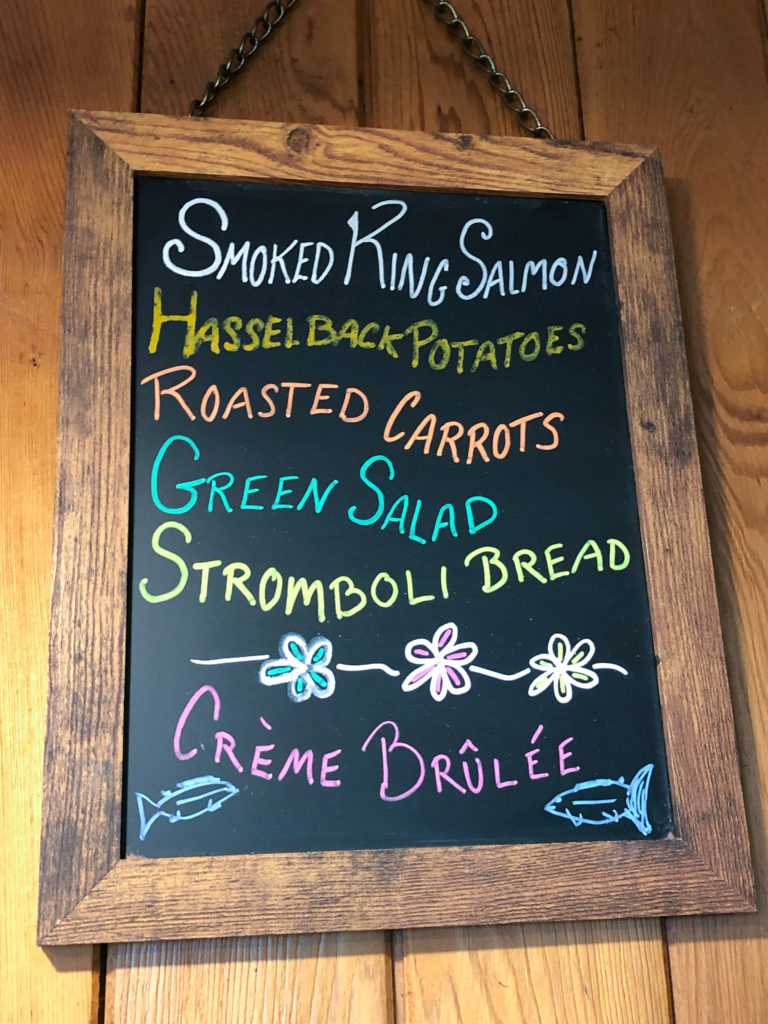 SMOKED KING SALMON
HASSELBACK POTATOES
ROASTED CARROTS
GREEN SALAD
STROMBOLI BREAD
CRÈME BRÛLÉE